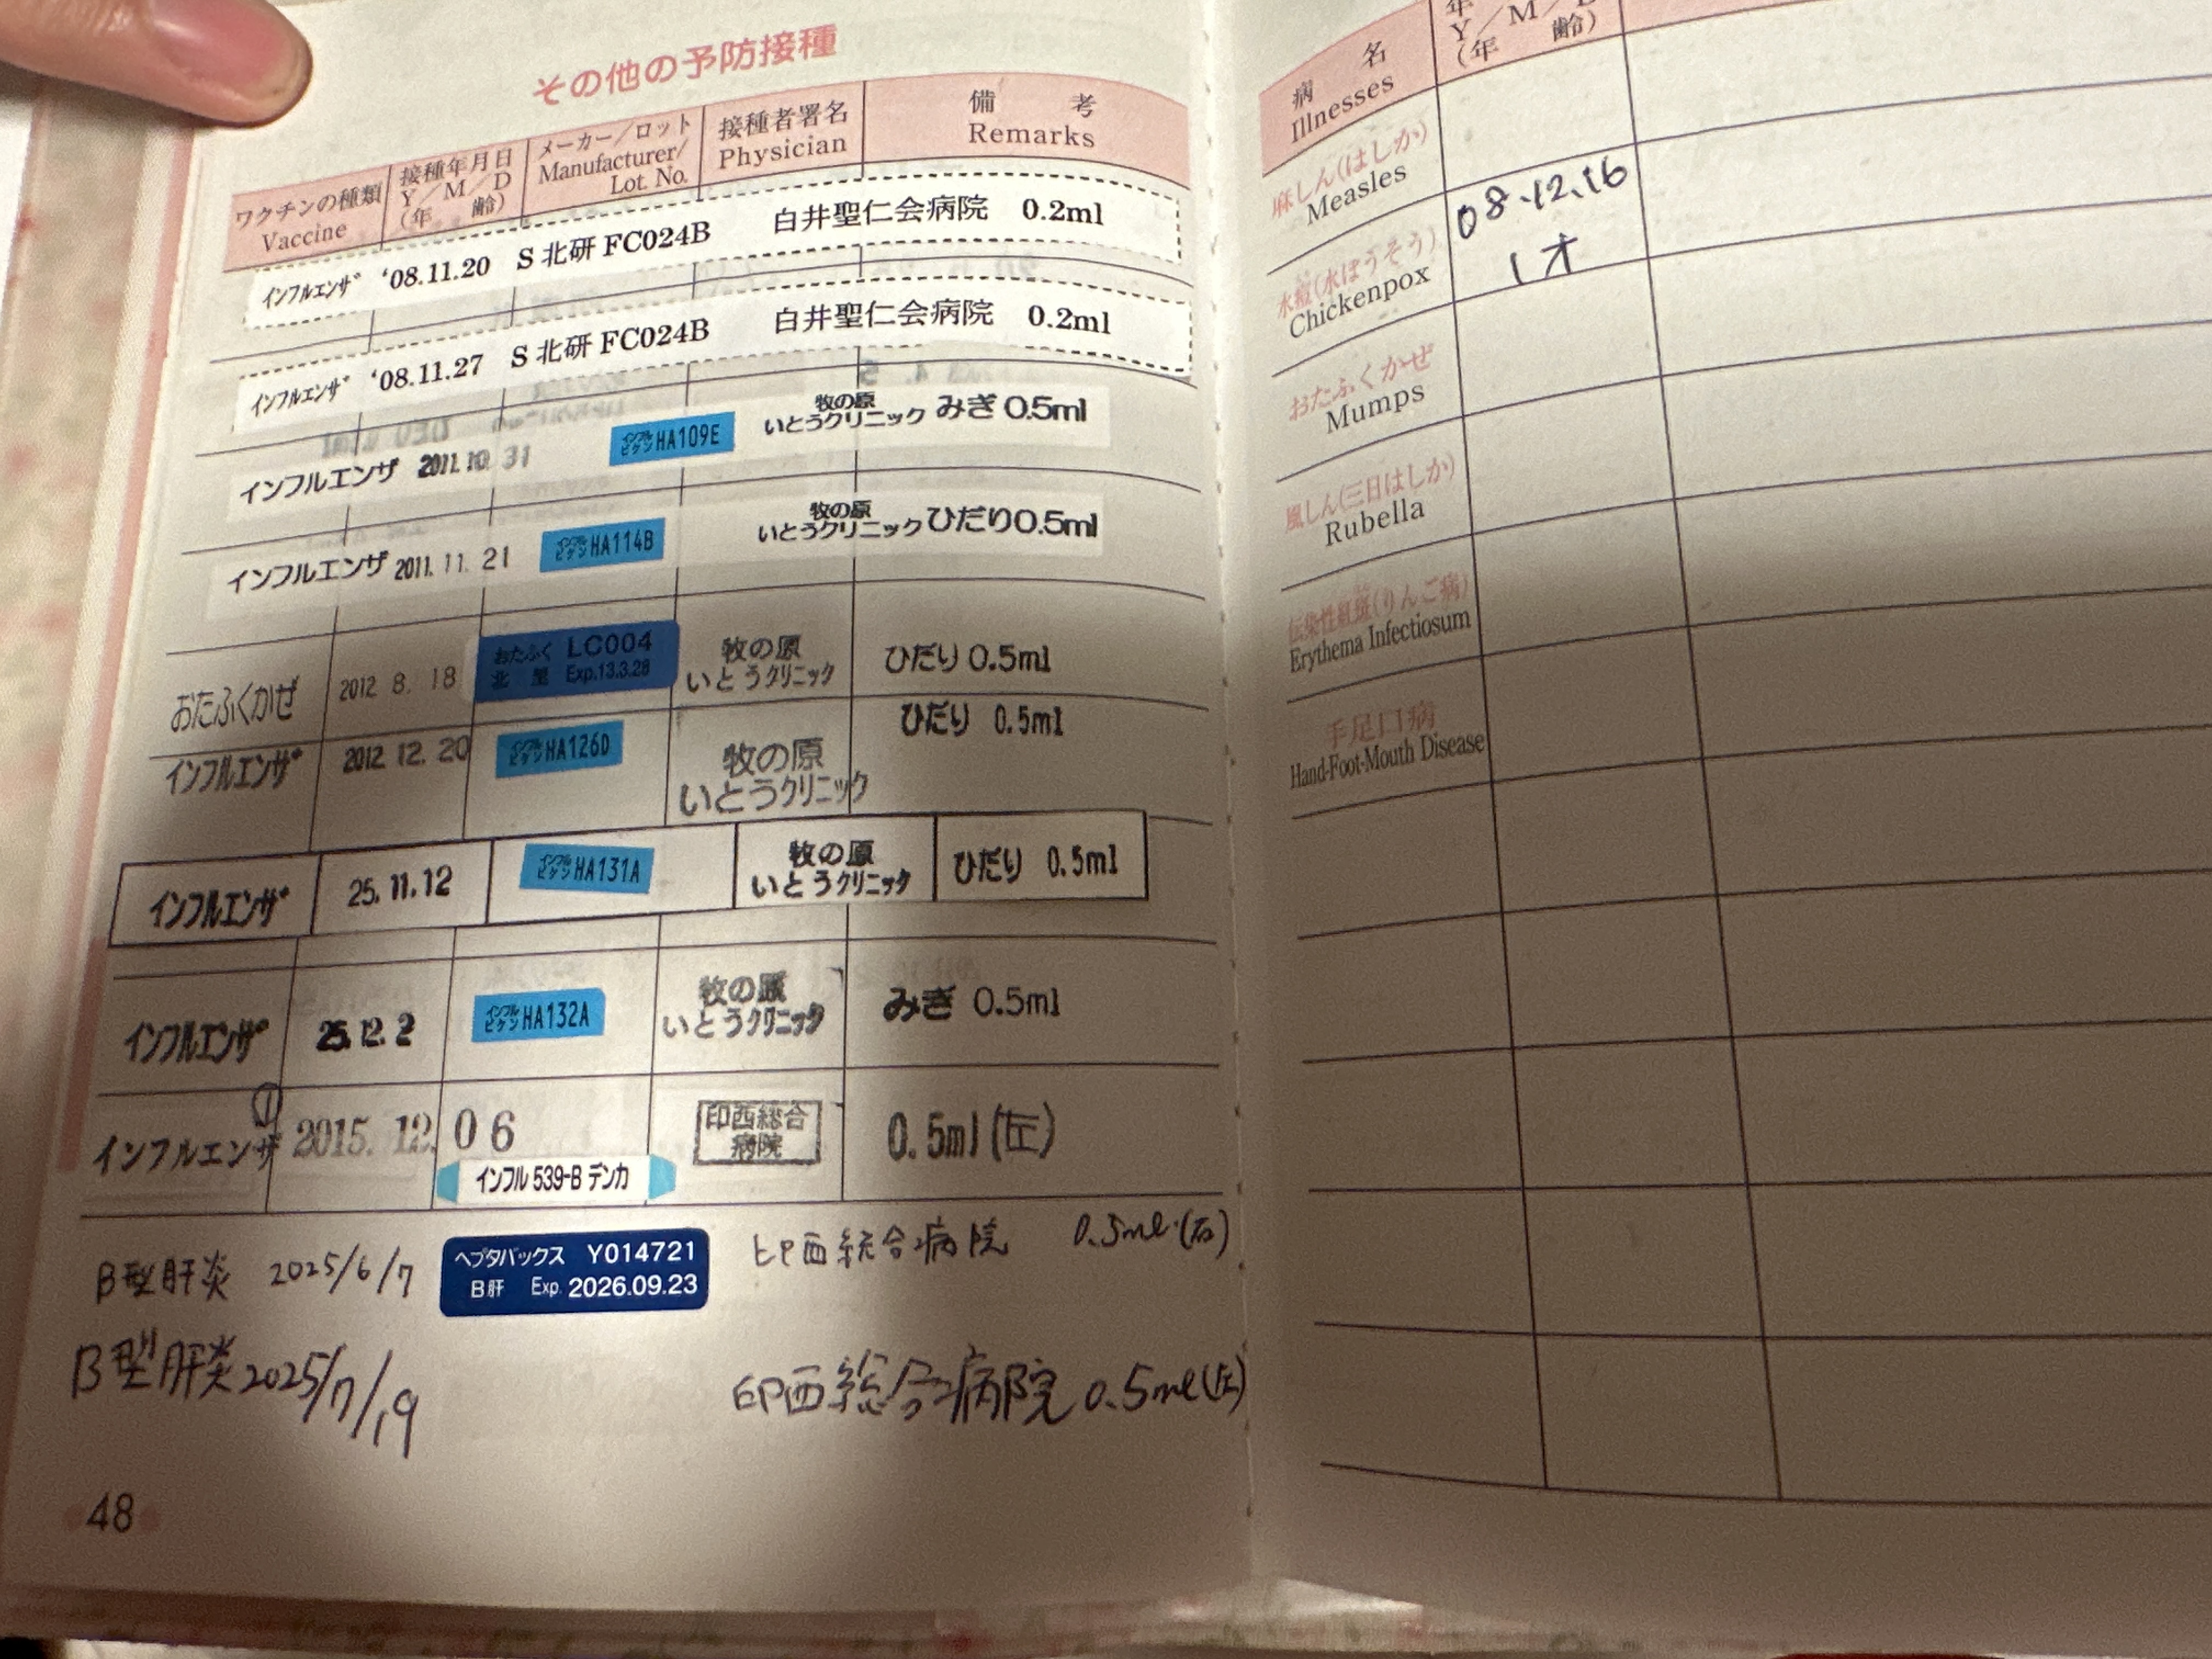 その他の予防接種
ワクチンの種類 接種年月日 メーカー/ロット 接種者署名 備考
Vaccine Y/M/D Manufacturer/ Physician Remarks
(年齢) Lot. No.
インフルエンザ '08.11.20 S 北研 FC024B 白井聖仁会病院 0.2ml
インフルエンザ '08.11.27 S 北研 FC024B 白井聖仁会病院 0.2ml
インフルエンザ 2011.10.31 インフルビケン HA109E 牧の原いとうクリニック みぎ 0.5ml
インフルエンザ 2011.11.21 インフルビケン HA114B 牧の原いとうクリニック ひだり 0.5ml
おたふくかぜ 2012 8. 18 おたふく LC004 牧の原 ひだり 0.5ml
北里 Exp.13.3.28 いとうクリニック
インフルエンザ 2012 12. 20 インフルビケン HA126D 牧の原いとうクリニック ひだり 0.5ml
インフルエンザ 25.11.12 インフルビケン HA131A 牧の原いとうクリニック ひだり 0.5ml
インフルエンザ 25.12.2 インフルビケン HA132A 牧の原いとうクリニック みぎ 0.5ml
①
インフルエンザ 2015.12.06 印西総合病院 0.5ml(左)
インフル 539-B デンカ
B型肝炎 2025/6/7 ヘプタバックス Y014721 印西総合病院 0.5ml(右)
B肝 Exp. 2026.09.23
B型肝炎 2025/7/19 印西総合病院 0.5ml(左)
48
病名 Y/M/D
Illnesses (年齢)
麻しん(はしか)
Measles
水痘(水ぼうそう) 08.12.16
Chickenpox 1才
おたふくかぜ
Mumps
風しん(三日はしか)
Rubella
伝染性紅斑(りんご病)
Erythema Infectiosum
手足口病
Hand-Foot-Mouth Disease